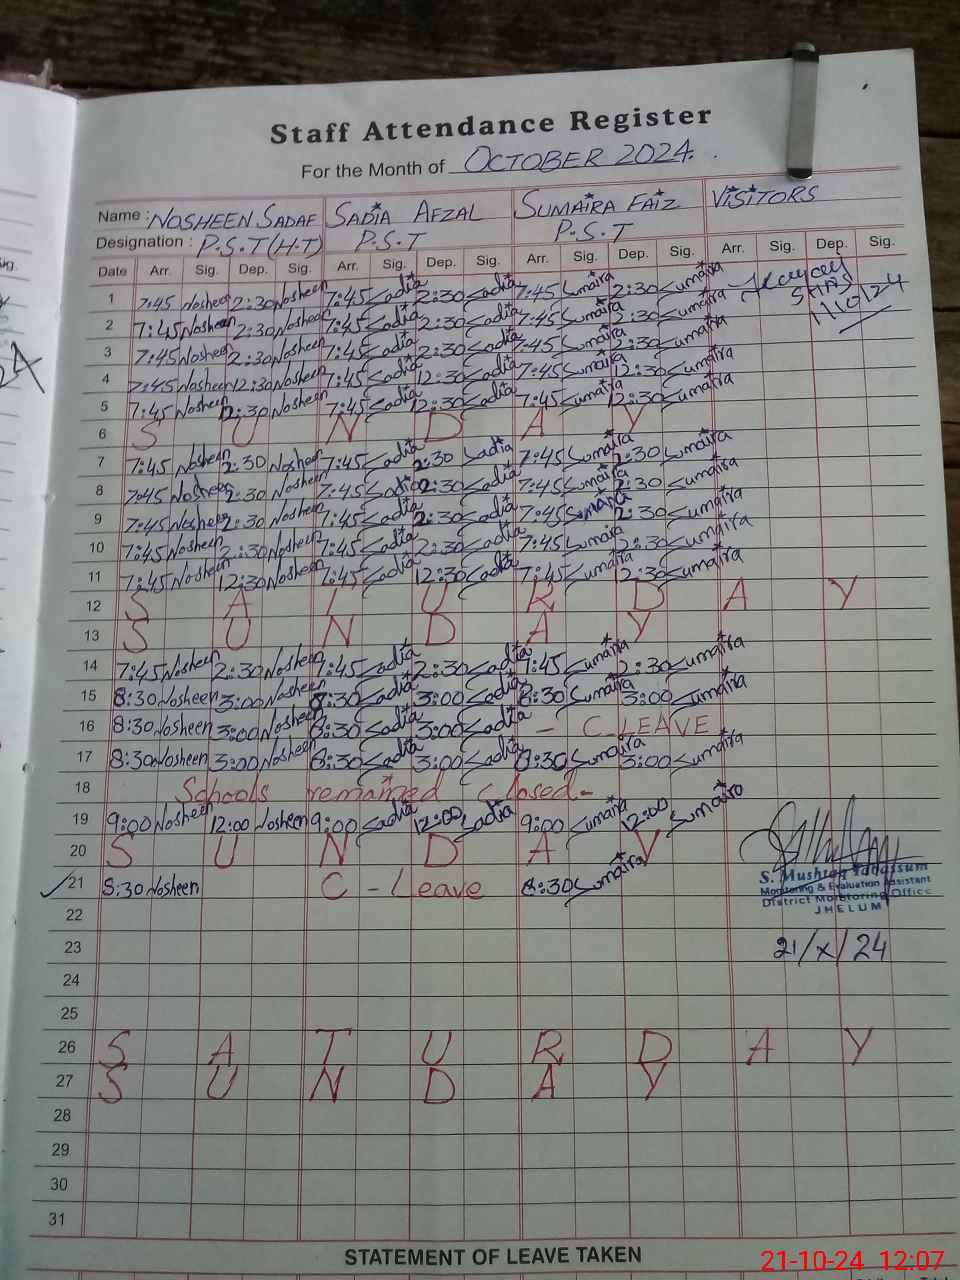 Staff Attendance Register
For the Month of OCTOBER 2024.
Name : NOSHEEN SADAF SADIA AFZAL SUMAIRA FAIZ VISITORS
Designation : P.S.T (H.T) P.S.T P.S.T
Date Arr. Sig. Dep. Sig. Arr. Sig. Dep. Sig. Arr. Sig. Dep. Sig. Arr. Sig. Dep. Sig.
1 7:45 Nosheen 2:30 Nosheen 7:45 Sadia 2:30 Sadia 7:45 Sumaira 2:30 Sumaira
1/10/24
2 7:45 Nosheen 2:30 Nosheen 7:45 Sadia 2:30 Sadia 7:45 Sumaira 2:30 Sumaira
3 7:45 Nosheen 2:30 Nosheen 7:45 Sadia 2:30 Sadia 7:45 Sumaira 2:30 Sumaira
4 7:45 Nosheen 12:30 Nosheen 7:45 Sadia 12:30 Sadia 7:45 Sumaira 12:30 Sumaira
5 7:45 Nosheen 12:30 Nosheen 7:45 Sadia 12:30 Sadia 7:45 Sumaira 12:30 Sumaira
6 S U N D A Y
7 7:45 Nosheen 2:30 Nosheen 7:45 Sadia 2:30 Sadia 7:45 Sumaira 2:30 Sumaira
8 7:45 Nosheen 2:30 Nosheen 7:45 Sadia 2:30 Sadia 7:45 Sumaira 2:30 Sumaira
9 7:45 Nosheen 2:30 Nosheen 7:45 Sadia 2:30 Sadia 7:45 Sumaira 2:30 Sumaira
10 7:45 Nosheen 2:30 Nosheen 7:45 Sadia 2:30 Sadia 7:45 Sumaira 2:30 Sumaira
11 7:45 Nosheen 12:30 Nosheen 7:45 Sadia 12:30 Sadia 7:45 Sumaira 12:30 Sumaira
12 S A T U R D A Y
13 S U N D A Y
14 7:45 Nosheen 2:30 Nosheen 7:45 Sadia 2:30 Sadia 7:45 Sumaira 2:30 Sumaira
15 8:30 Nosheen 3:00 Nosheen 8:30 Sadia 3:00 Sadia 8:30 Sumaira 3:00 Sumaira
16 8:30 Nosheen 3:00 Nosheen 8:30 Sadia 3:00 Sadia - C_LEAVE
17 8:30 Nosheen 3:00 Nosheen 8:30 Sadia 3:00 Sadia 8:30 Sumaira 3:00 Sumaira
18 Schools remained closed-
19 9:00 Nosheen 12:00 Nosheen 9:00 Sadia 12:00 Sadia 9:00 Sumaira 12:00 Sumaira
20 S U N D A Y
21 8:30 Nosheen C - Leave 8:30 Sumaira
S. Mushtaq Tabassum
Monitoring & Evaluation Assistant
District Monitoring Office
JHELUM
22
23 21/X/24
24
25
26 S A T U R D A Y
27 S U N D A Y
28
29
30
31
STATEMENT OF LEAVE TAKEN
21-10-24 12:07